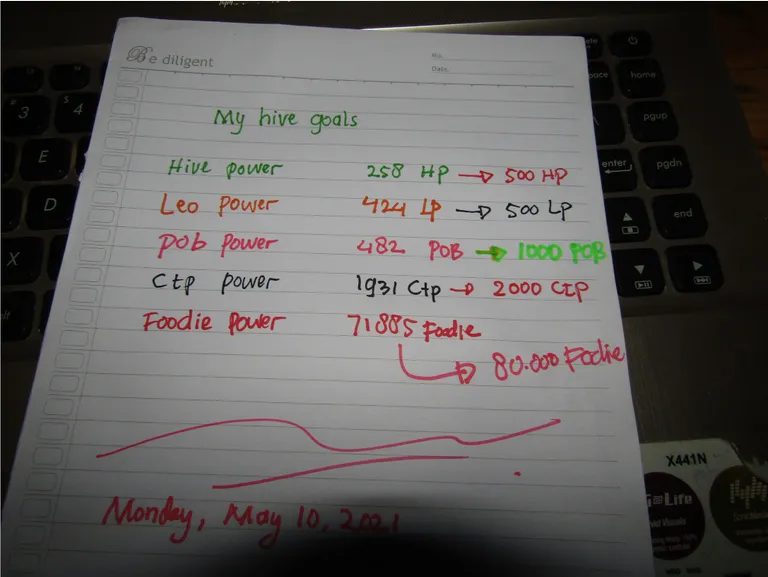 Be diligent
No.
Date.
My hive goals
Hive power 258 HP → 500 HP
Leo power 424 LP → 500 LP
POB power 482 POB → 1000 POB
Ctp power 1931 Ctp → 2000 CTP
Foodie power 71885 Foodie
→ 80.000 Fodie
Monday, May 10, 2021
# 3
$ 4
E
D
X
home
pgup
enter
pgdn
end
X441N